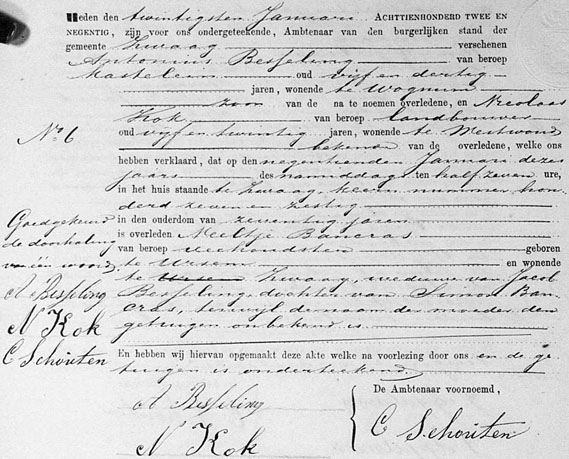 Heden den twintigsten Januari ACHTTIENHONDERD TWEE EN
NEGENTIG, zijn voor ons ondergeteekende, Ambtenaar van den burgerlijken stand der
gemeente Zwaag verschenen
Antonius Besseling van beroep
kastelein oud vijf en dertig
jaren, wonende te Wognum
zoon van de na te noemen overledene, en Nicolaas
Kok van beroep landbouwer
No 6
oud vijf en twintig jaren, wonende te Westwoud
bekende van de overledene, welke ons
hebben verklaard, dat op den negentienden Januari dezes
jaars des namiddags ten half zeven ure,
in het huis staande te Zwaag, nummer hon-
derd zeven en zestig
in den ouderdom van zeventig jaren
is overleden Neeltje Bancras
van beroep geboren
te Ursem en wonende
te Ursem Zwaag, weduwe van Jacob
Besseling, dochter van Simon Ban-
cras, terwijl de naam der moeder den
getuigen onbekend is
Goedgekeurd
de doorhaling
van één woord
A Besseling
N Kok
C Schouten
En hebben wij hiervan opgemaakt deze akte welke na voorlezing door ons en de ge-
tuigen is onderteekend.
A Besseling
N Kok
De Ambtenaar voornoemd,
C Schouten